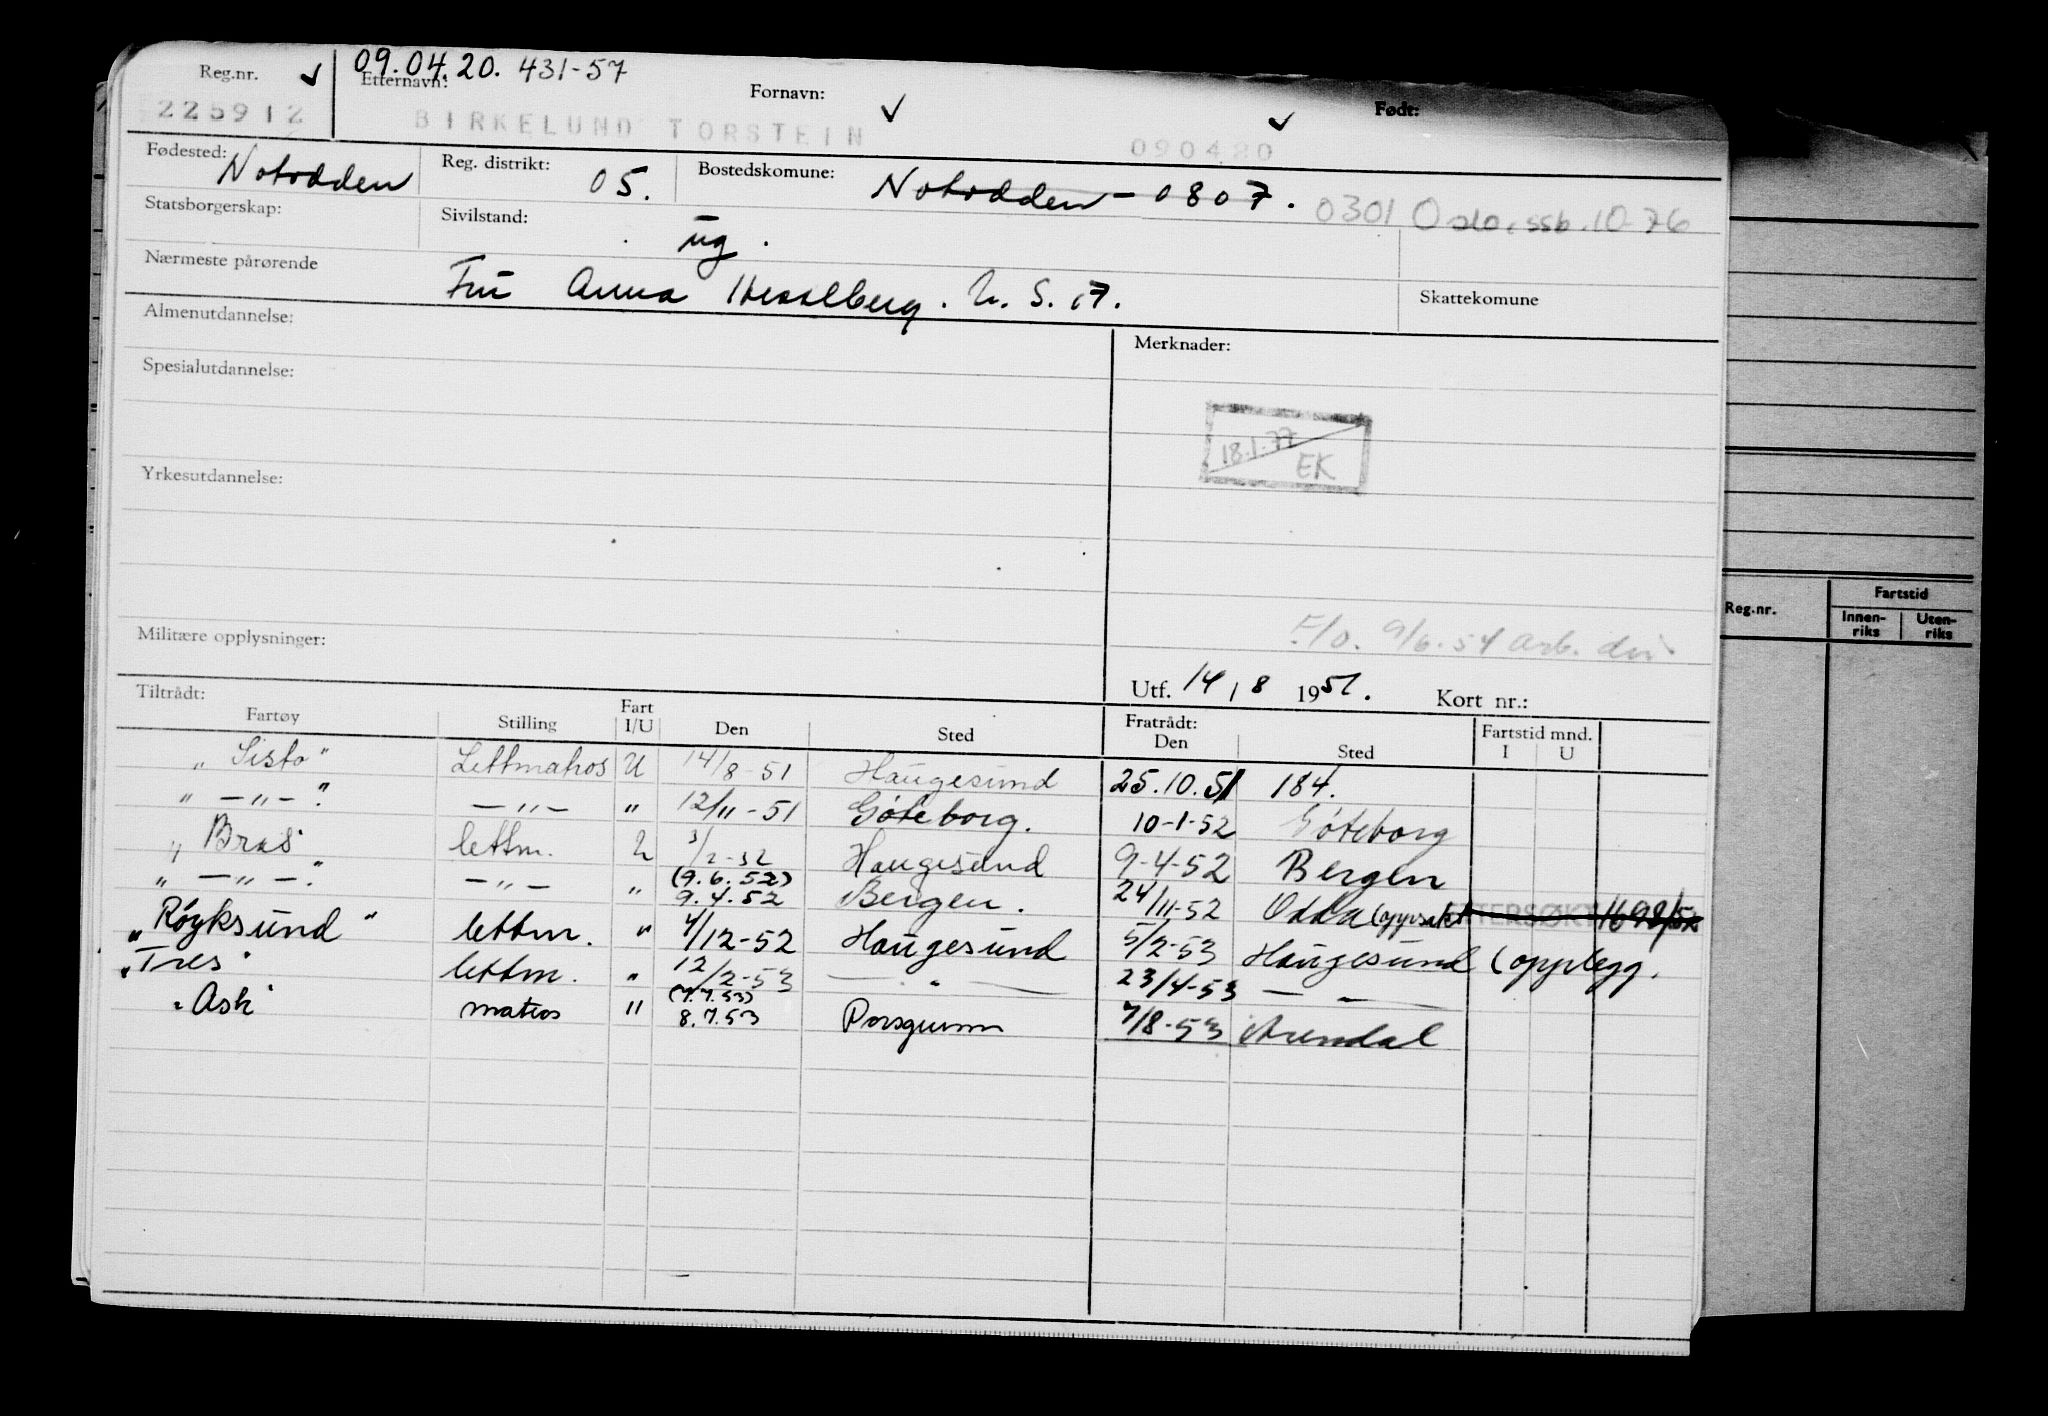 09.04.20. 431-57
Reg.nr. ✓ Etternavn: Fornavn: ✓ ✓ Født:
225912 BIRKELUND TORSTEIN 090420
Fødested: Notodden Reg. distrikt: 05. Bostedskomune: Notodden - 0807. 0301 Oslo, ssb. 10-76
Statsborgerskap: Sivilstand: ug.
Nærmeste pårørende Fru Anna Hesselberg. Skattekomune
Almenutdannelse: Merknader:
Spesialutdannelse:
18.1.77 EK
Yrkesutdannelse:
Reg.nr. Fartstid
Innen-riks Uten-riks
F/O. 9/6-54 arb. dir.
Militære opplysninger:
Utf. 14/8 1951. Kort nr.:
Tiltrådt: Fratrådt: Fartstid mnd.
Fartøy Stilling Fart I/U Den Sted Den Sted I U
"Sisto" Lettmatros U 14/8-51 Haugesund 25.10.51 184.
" —"— " —"— " 12/11-51 Göteborg. 10-1-52 Göteborg
"Bras" lettm. U 3/2-52 Haugesund 9-4-52 Bergen
" —"— " —"— " (9.6.52) 9.4.52 Bergen. 24/11-52 Odda
"Röyksund" lettm. " 4/12-52 Haugesund 5/2-53 Haugesund (opplegg.
"Tres" lettm. " 12/2-53 — " — 23/4-53 — " —
"Ask" matros " (7.7.53) 8.7.53 Porsgrunn 7/8-53 Arendal